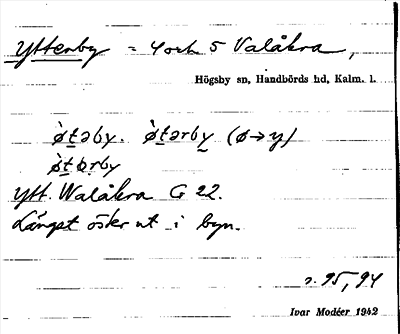 Ytterby = 4 och 5 Valåkra,
Högsby sn, Handbörds hd, Kalm. l.
ø̀təby. ø̀tərby (ø→y)
ø̀tərby
Ytt. Walåkra G 22.
Längst öster ut i byn.
s. 95, 94
Ivar Modéer 1942